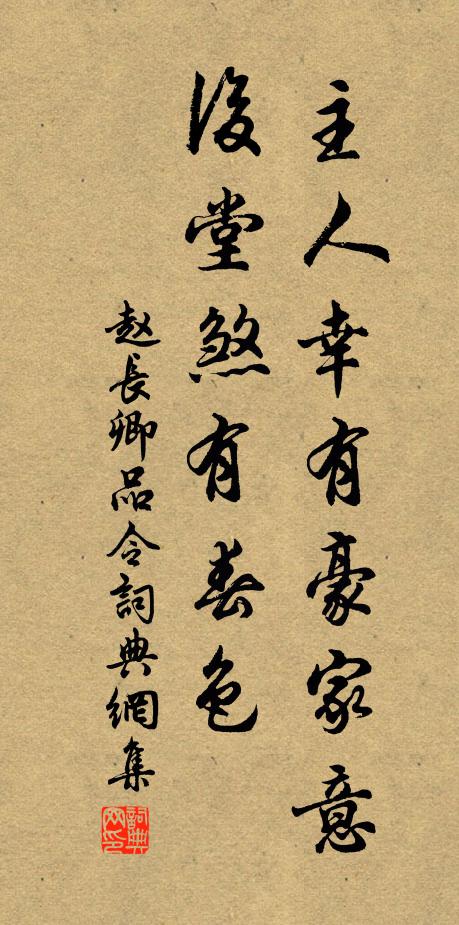 主人幸有豪家意
後堂煞有春色
赵長卿品令詞典網集
詞典网印